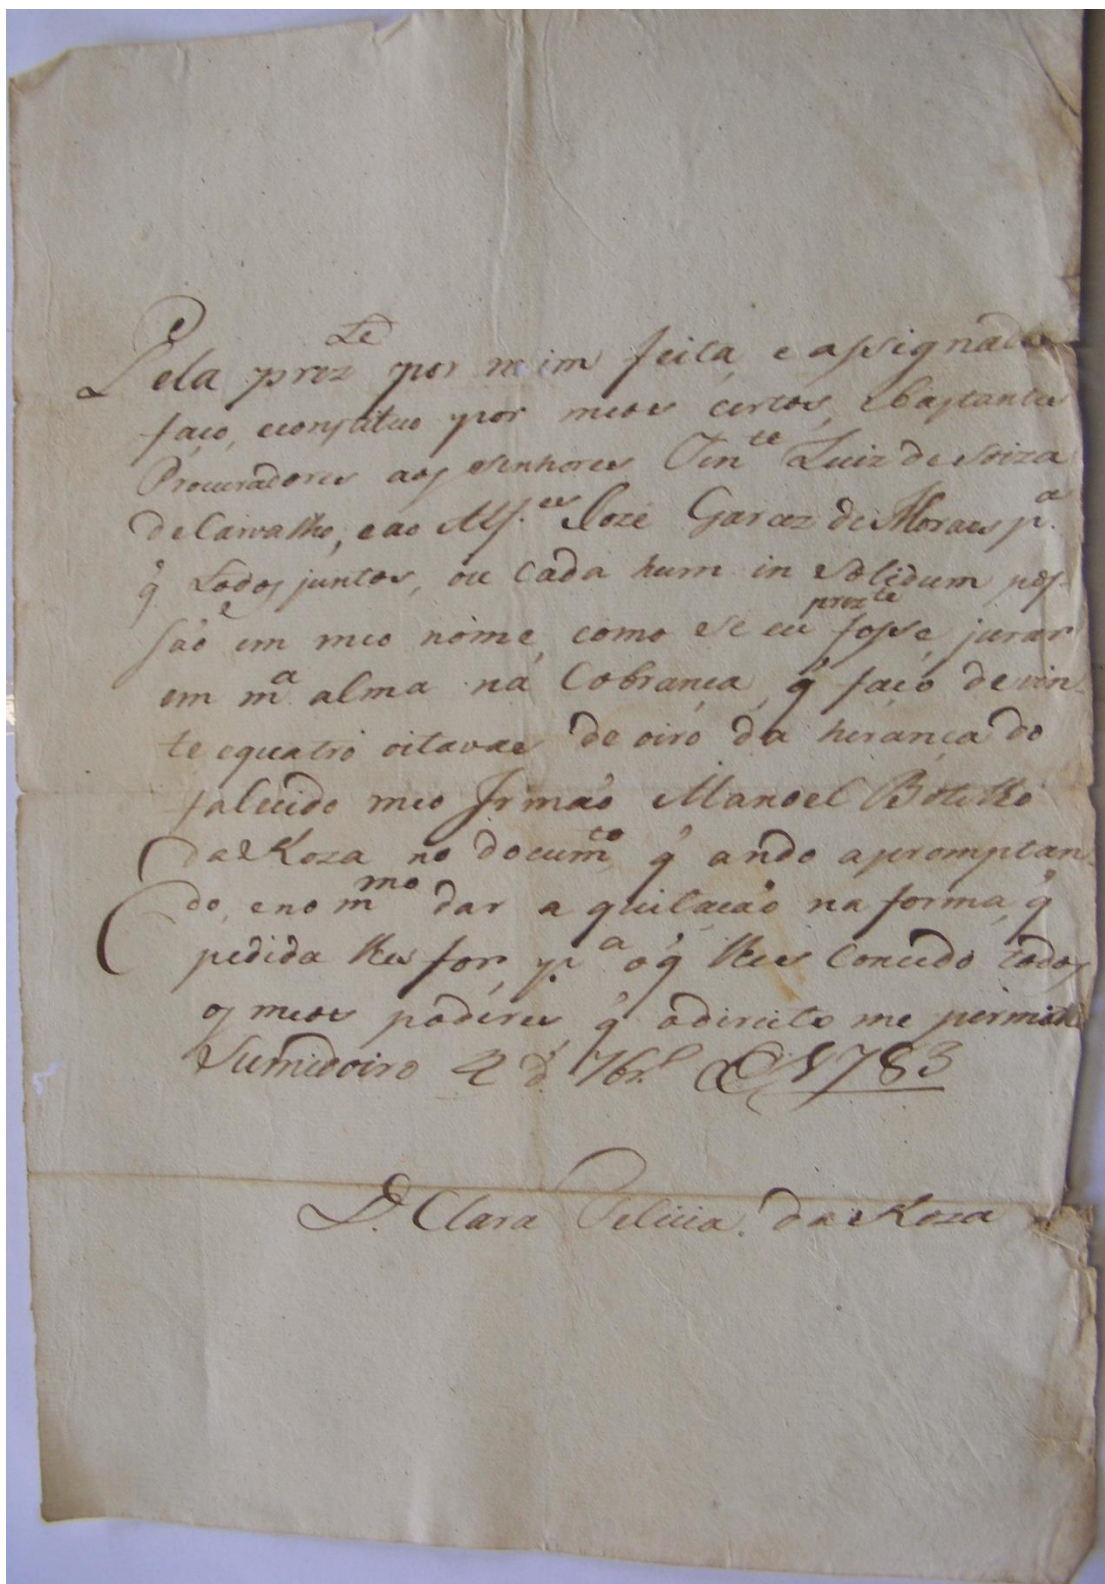 Pela prez.te por mim feita, e assignada
faço, econstituo por meos certos, ebastantes
Procuradores aos Senhores Ten.te Luiz de Soiza
de Carvalho, e ao Alf.es Jozé Garcez de Moraes p.a
q̃ todos juntos, ou cada hum in solidum pos-
são em meo nome, como se eu prez.te fosse, jurar
em m.a alma na Cobrança, q̃ faço de vin-
te equatro oitavas de oiro da herança do
falecido meo Irmão Manoel Botelho
da Roza no docum.to, q̃ ando apromptan-
do, eno m.mo dar a quitação na forma, q̃
pedida lhes for, p.a o q̃ lhes concedo todos
os meos podéres, q̃ odireito me permite
Sumidoiro 2 d' 7br.o de 1783
D. Clara Felicia da Roza